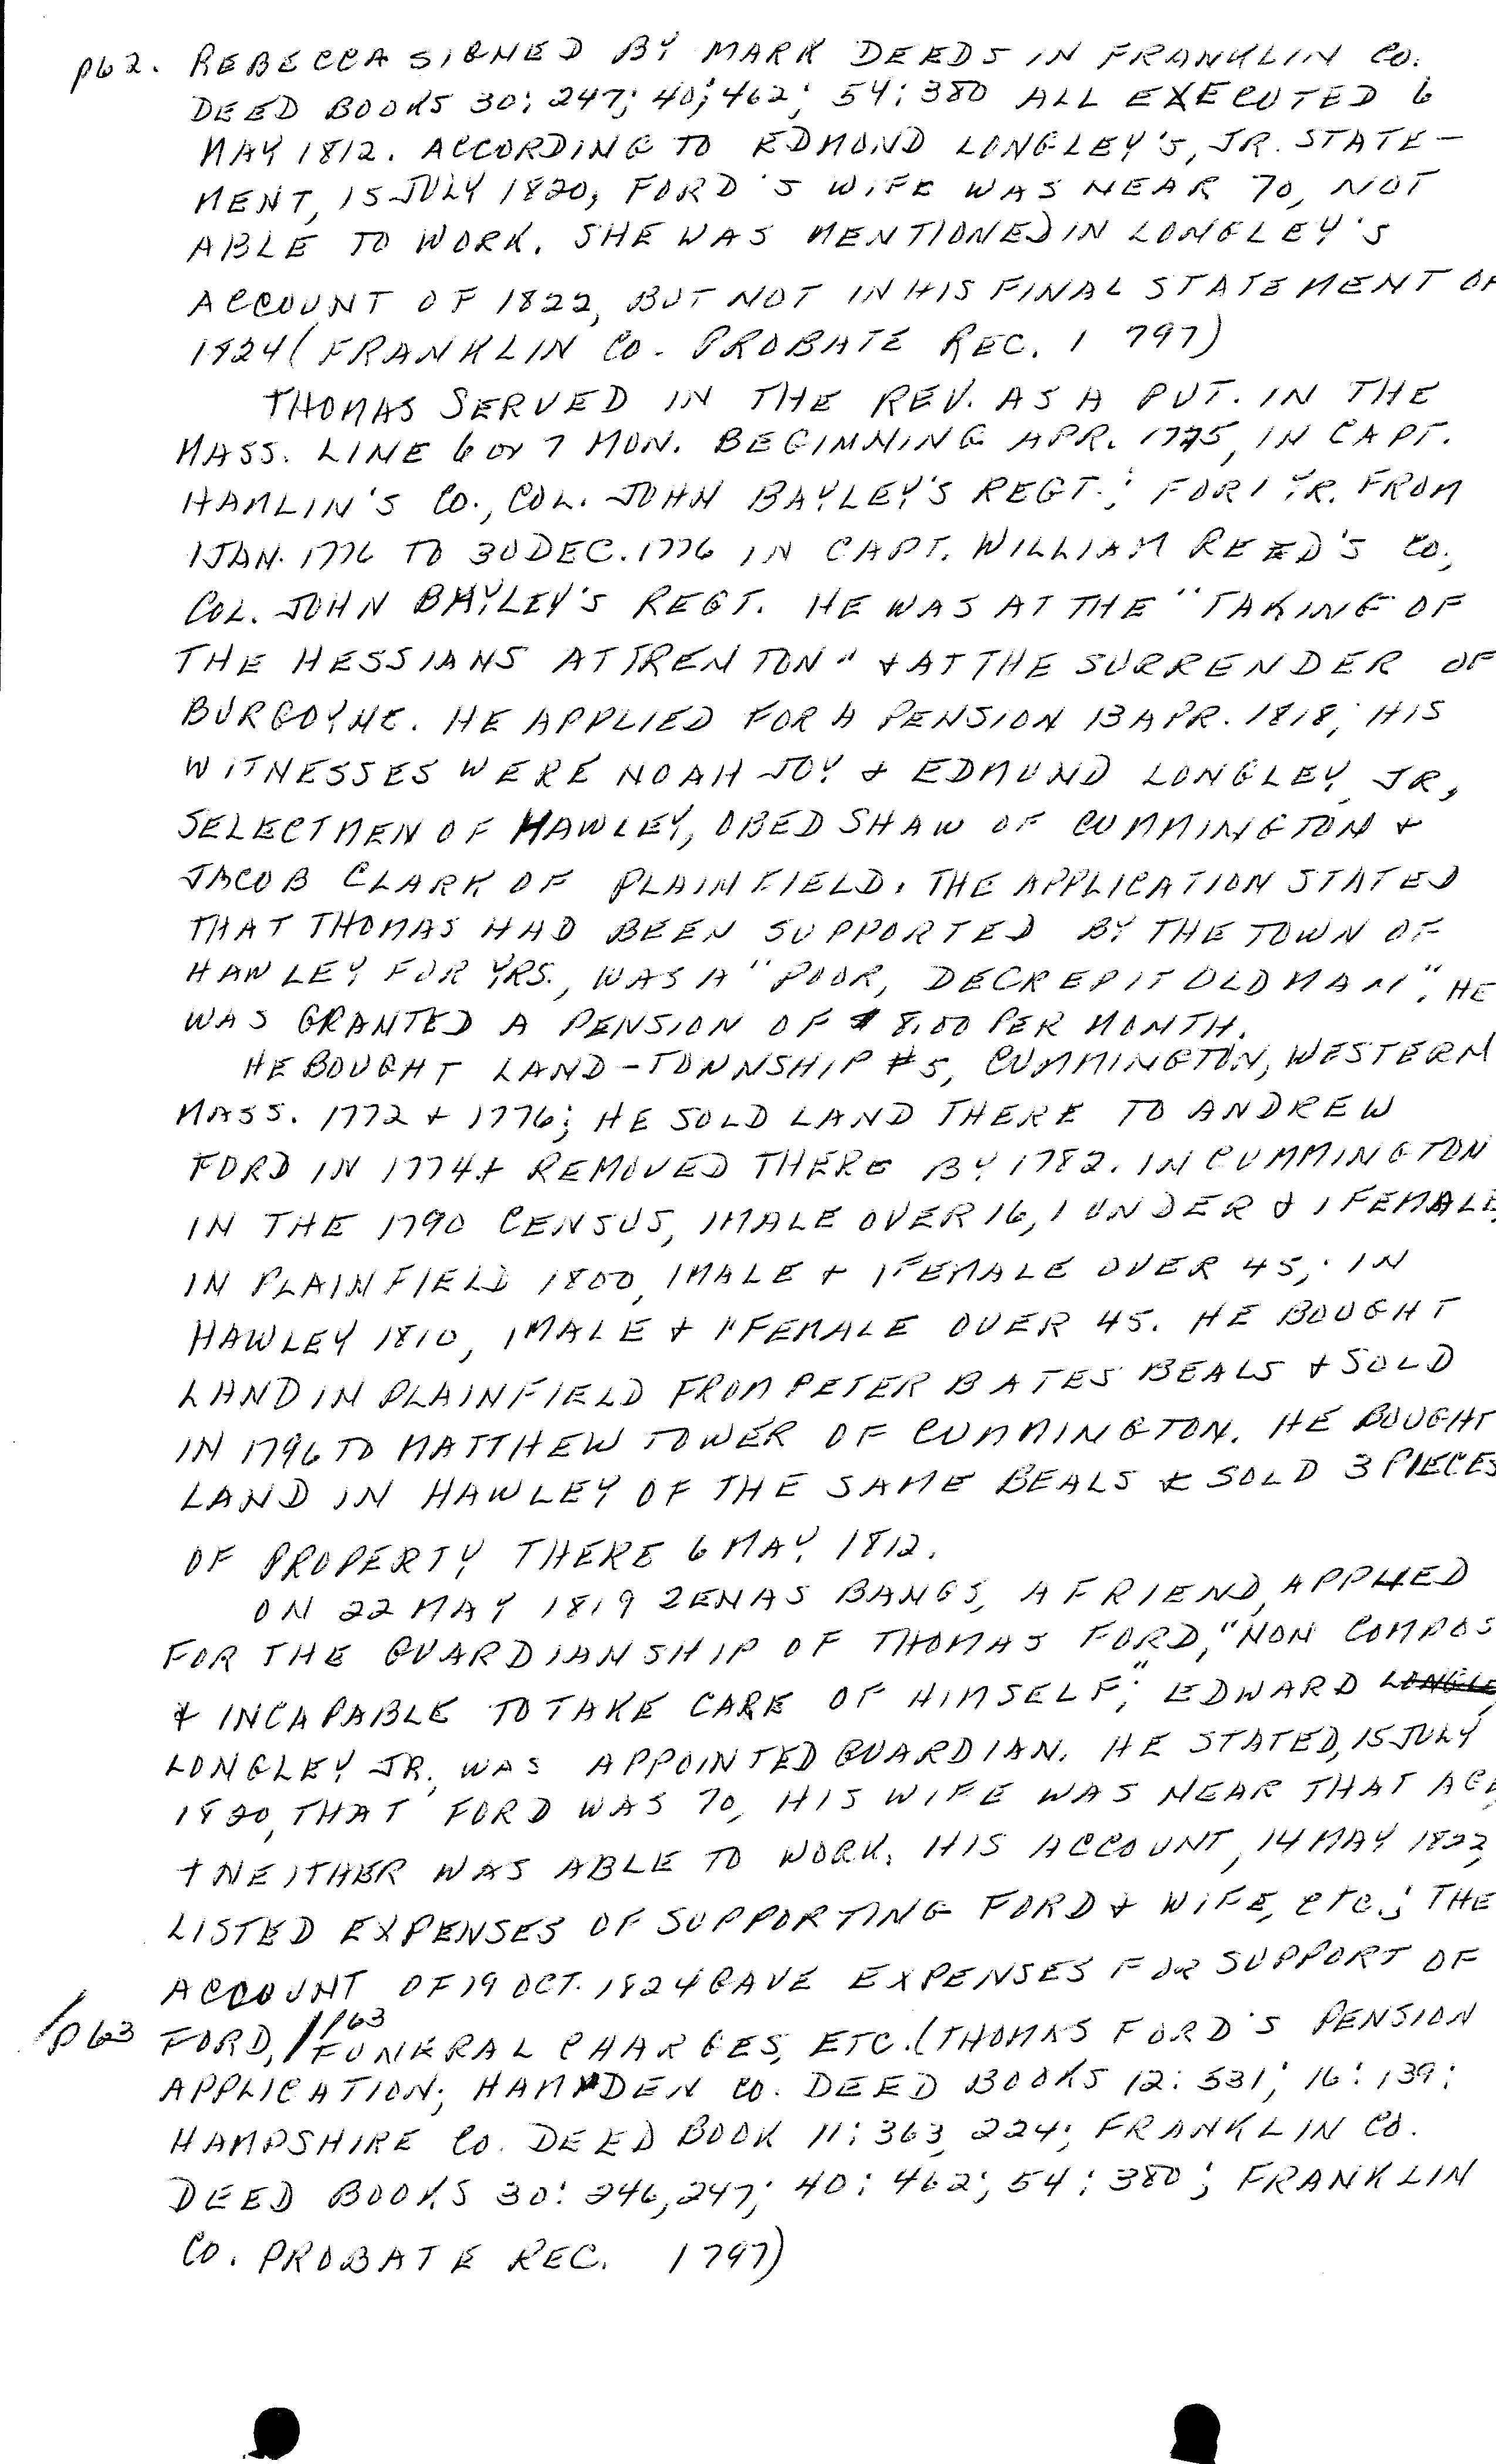 p62. REBECCA SIGNED BY MARK DEEDS IN FRANKLIN CO.
DEED BOOKS 30: 247; 40; 462; 54: 380 ALL EXECUTED 6
MAY 1812. ACCORDING TO EDMOND LONGLEY'S, JR. STATE-
MENT, 15 JULY 1820, FORD'S WIFE WAS NEAR 70, NOT
ABLE TO WORK. SHE WAS MENTIONED IN LONGLEY'S
ACCOUNT OF 1822, BUT NOT IN HIS FINAL STATEMENT OF
1824 (FRANKLIN CO. PROBATE REC. 1 797)
THOMAS SERVED IN THE REV. AS A PVT. IN THE
MASS. LINE 6 or 7 MON. BEGINNING APR. 1775, IN CAPT.
HAMLIN'S CO., COL. JOHN BAYLEY'S REGT.; FOR 1 YR. FROM
1 JAN. 1776 TO 30 DEC. 1776 IN CAPT. WILLIAM REED'S CO.,
COL. JOHN BAYLEY'S REGT. HE WAS AT THE "TAKING OF
THE HESSIANS AT TRENTON" + AT THE SURRENDER OF
BURGOYNE. HE APPLIED FOR A PENSION 13 APR. 1818; HIS
WITNESSES WERE NOAH JOY + EDMUND LONGLEY, JR,
SELECTMEN OF HAWLEY, OBED SHAW OF CUMMINGTON +
JACOB CLARK OF PLAINFIELD. THE APPLICATION STATED
THAT THOMAS HAD BEEN SUPPORTED BY THE TOWN OF
HAWLEY FOR YRS., WAS A "POOR, DECREPIT OLD MAN". HE
WAS GRANTED A PENSION OF $8.00 PER MONTH.
HE BOUGHT LAND - TOWNSHIP #5, CUMMINGTON, WESTERN
MASS. 1772 + 1776; HE SOLD LAND THERE TO ANDREW
FORD IN 1774 + REMOVED THERE BY 1782. IN CUMMINGTON
IN THE 1790 CENSUS, 1 MALE OVER 16, 1 UNDER + 1 FEMALE,
IN PLAINFIELD 1800, 1 MALE + 1 FEMALE OVER 45; IN
HAWLEY 1810, 1 MALE + 1 FEMALE OVER 45. HE BOUGHT
LAND IN PLAINFIELD FROM PETER BATES BEALS + SOLD
IN 1796 TO MATTHEW TOWER OF CUMMINGTON. HE BOUGHT
LAND IN HAWLEY OF THE SAME BEALS & SOLD 3 PIECES
OF PROPERTY THERE 6 MAY 1812.
ON 22 MAY 1819 ZENAS BANGS, A FRIEND, APPLIED
FOR THE GUARDIANSHIP OF THOMAS FORD, "NON COMPOS
+ INCAPABLE TO TAKE CARE OF HIMSELF;" EDWARD LONGLE
LONGLEY JR. WAS APPOINTED GUARDIAN. HE STATED, 15 JULY
1820, THAT FORD WAS 70, HIS WIFE WAS NEAR THAT AGE,
+ NEITHER WAS ABLE TO WORK. HIS ACCOUNT, 14 MAY 1822,
LISTED EXPENSES OF SUPPORTING FORD + WIFE, etc.; THE
ACCOUNT OF 19 OCT. 1824 GAVE EXPENSES FOR SUPPORT OF
/p63 FORD, / p63 FUNERAL CHARGES, ETC. (THOMAS FORD'S PENSION
APPLICATION; HAMPDEN CO. DEED BOOKS 12: 531; 16: 139;
HAMPSHIRE CO. DEED BOOK 11: 363, 224; FRANKLIN CO.
DEED BOOKS 30: 246, 247; 40: 462; 54: 380; FRANKLIN
CO. PROBATE REC. 1797)